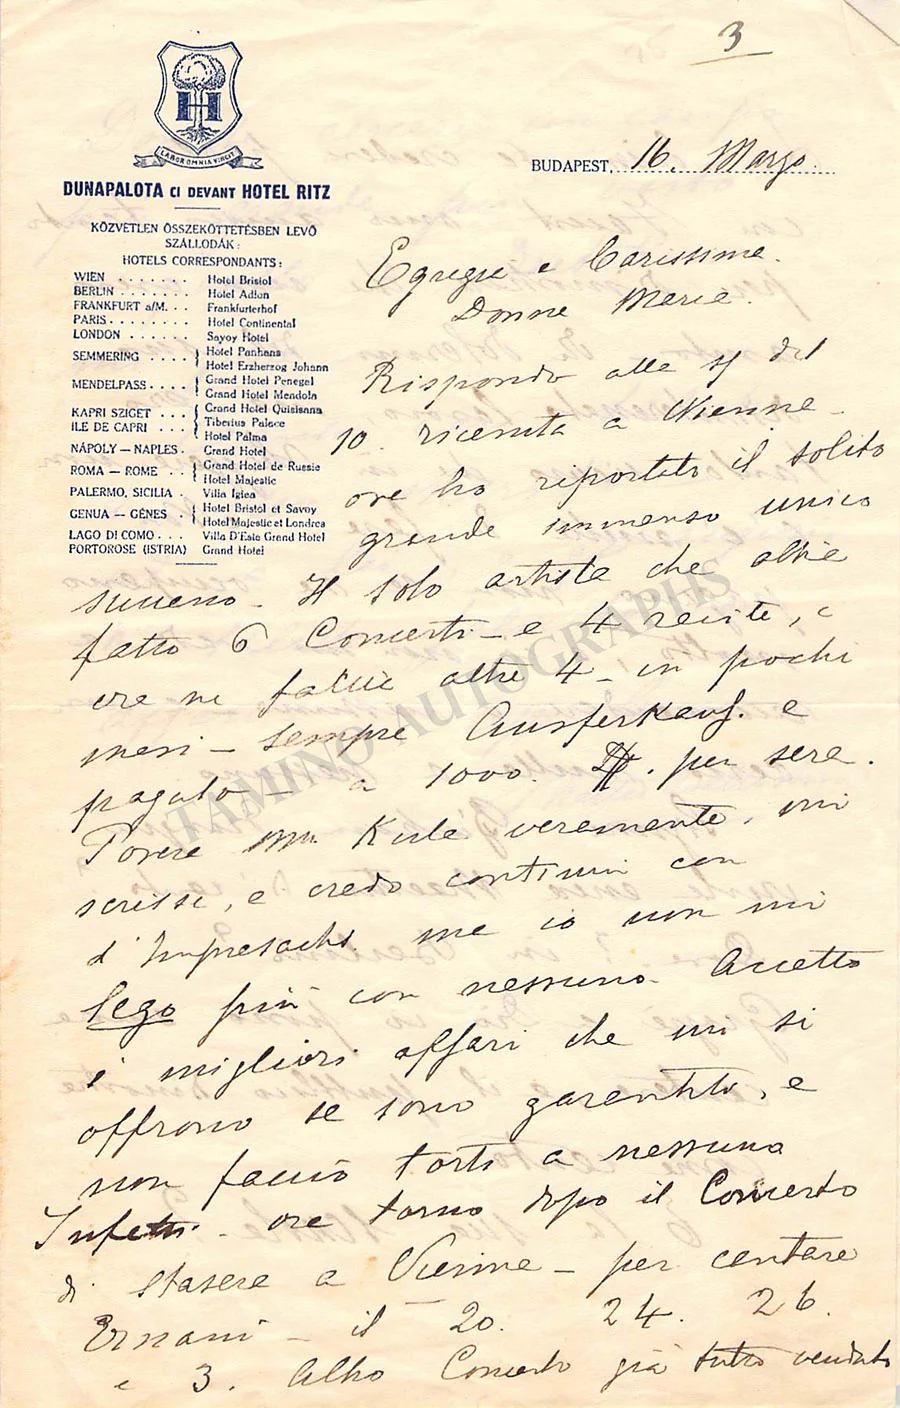 3
LABOR OMNIA VINCIT
DUNAPALOTA CI DEVANT HOTEL RITZ
BUDAPEST, 16. Marzo.
KÖZVETLEN ÖSSZEKÖTTETÉSBEN LEVŐ
SZÁLLODÁK:
HOTELS CORRESPONDANTS:
WIEN . . . . . . . Hotel Bristol
BERLIN . . . . . . . Hotel Adlon
FRANKFURT a/M. . . Frankfurterhof
PARIS . . . . . . . . Hotel Continental
LONDON . . . . . . Savoy Hotel
SEMMERING . . . . { Hotel Panhans
Hotel Erzherzog Johann
MENDELPASS . . . . { Grand Hotel Penegal
Grand Hotel Mendola
KAPRI SZIGET . . . { Grand Hotel Quisisana
ILE DE CAPRI . . . Tiberius Palace
Hotel Palma
NÁPOLY — NAPLES . Grand Hotel
ROMA — ROME . . { Grand Hotel de Russie
Hotel Majestic
PALERMO, SICILIA . Villa Igiea
GENUA — GÉNES . { Hotel Bristol et Savoy
Hotel Majestic et Londres
LAGO DI COMO . . . Villa D'Este Grand Hotel
PORTOROSE (ISTRIA) Grand Hotel
Egregie e Carissime
Donne Merie.
Rispondo alle del
10. ricevuta a Vienne
ore ho riportato il solito
grande immenso unico
successo - Il solo artiste che abbie
fatto 6 Concerti - e 4 recite, e
ore ne altre 4 - in pochi
mesi - sempre Ausferkauf. e
pagato - a 1000. per sere.
Povere Kule veremente, mi
scrisse, e credo continui con
d'Impresachs. me io non mi
lego più con nessuno. Accetto
i migliori affari che mi si
offrono se sono garentito, e
non faccio torti a nessuno
Infetti - ore torno dopo il Concerto
di stasere a Vienne - per centare
Ernani - il 20. 24. 26.
e 3. Altro Concerto già tutto venduto
TAMINO AUTOGRAPHS